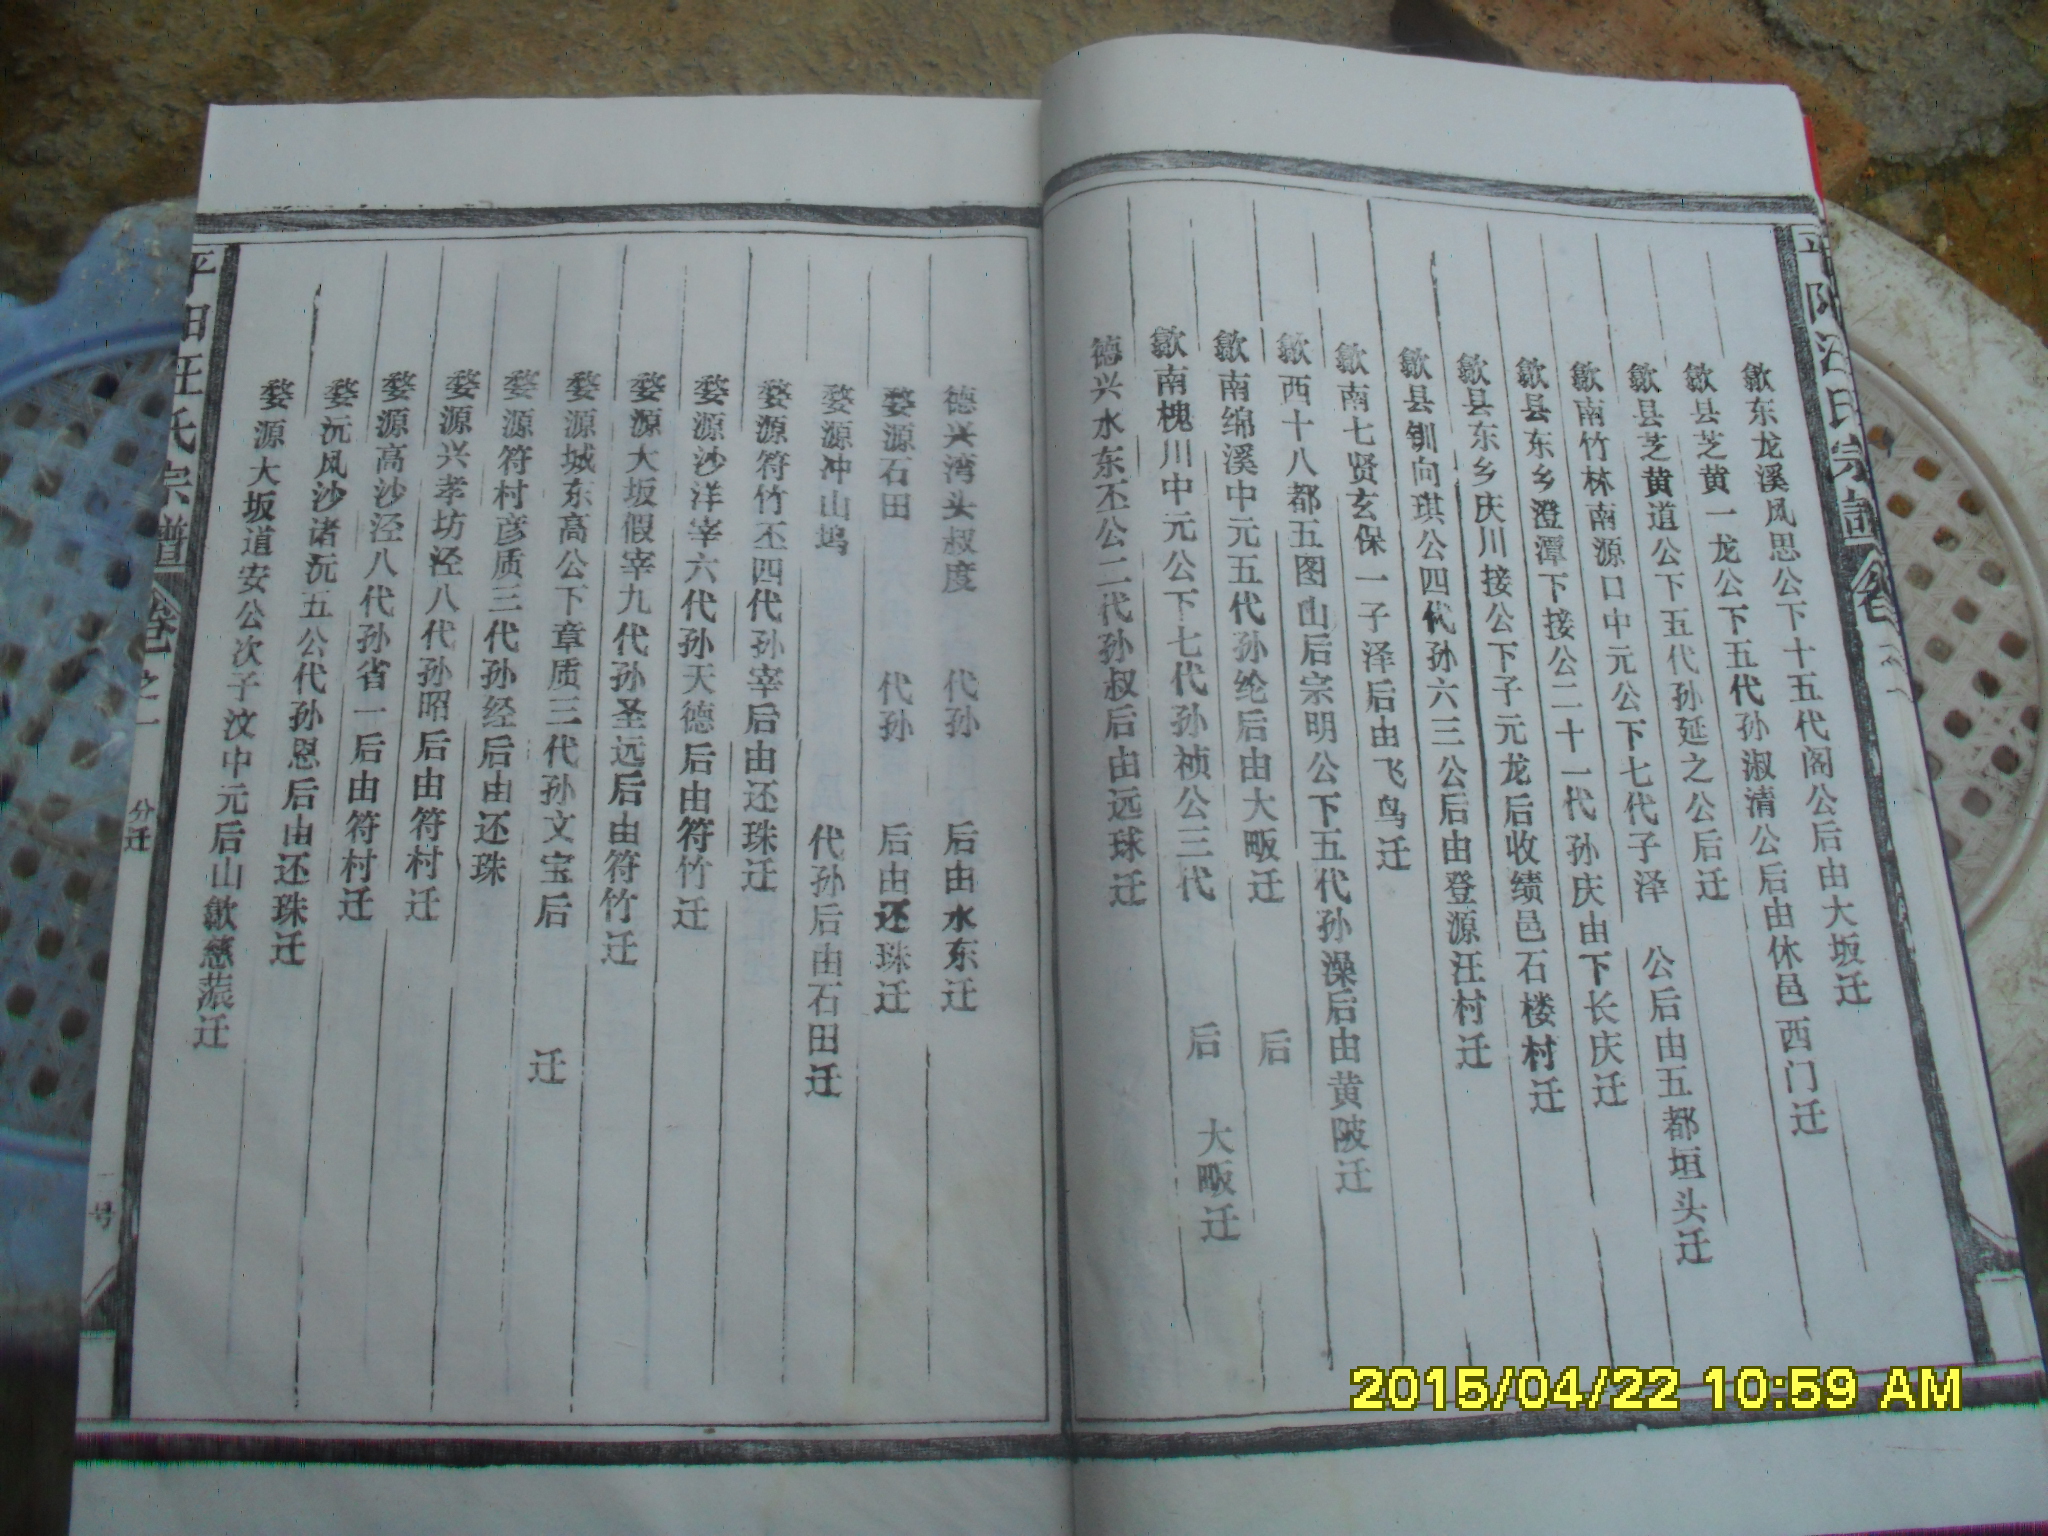 平阳汪氏宗谱
歙东龙溪凤思公下十五代阁公后由大坂迁
歙县芝黄一龙公下五代孙淑清公后由休邑西门迁
歙县芝黄道公下五代孙延之公后迁
歙南竹林南源口中元公下七代子泽 公后由五都垣头迁
歙县东乡澄潭下接公二十一代孙庆由下长庆迁
歙县东乡庆川接公下子元龙后收绩邑石楼村迁
歙县钏向琪公四代孙六三公后由登源汪村迁
歙南七贤玄保一子泽后由飞鸟迁
歙西十八都五图山后宗明公下五代孙澡后由黄陂迁
歙南绵溪中元五代孙纶后由大畈迁 后
歙南槐川中元公下七代孙祯公三代 后 大畈迁
德兴水东丕公二代孙叔后由远球迁
德兴湾头叔度 代孙 后由水东迁
婺源石田 代孙 后由还珠迁
婺源冲山坞 代孙后由石田迁
婺源符竹丕四代孙宰后由还珠迁
婺源沙洋宰六代孙天德后由符竹迁
婺源大坂假宰九代孙圣远后由符竹迁
婺源城东高公下章质三代孙文宝后 迁
婺源符村彦质三代孙经后由还珠
婺源兴孝坊泾八代孙昭后由符村迁
婺源高沙泾八代孙省一后由符村迁
婺沅凤沙诸沅五公代孙恩后由还珠迁
婺源大坂道安公次子汶中元后山歙慈蒎迁
平阳汪氏宗谱 卷之一 分迁 一号
2015/04/22 10:59 AM